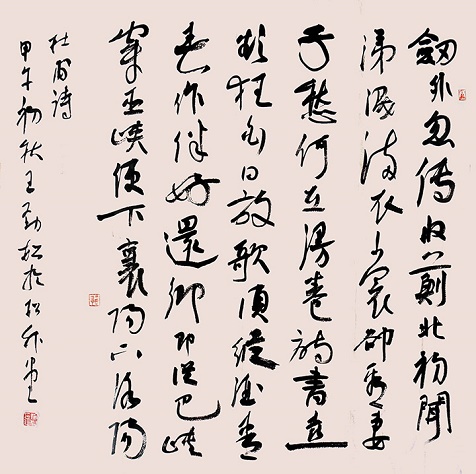 劒外忽傳收薊北初聞
涕淚满衣裳卻看妻
子愁何在漫卷詩書喜
欲狂白日放歌須縱酒青
春作伴好還鄉即從巴峽
穿巫峽便下襄陽向洛陽
杜甫詩
甲午初秋王勁松於松竹堂